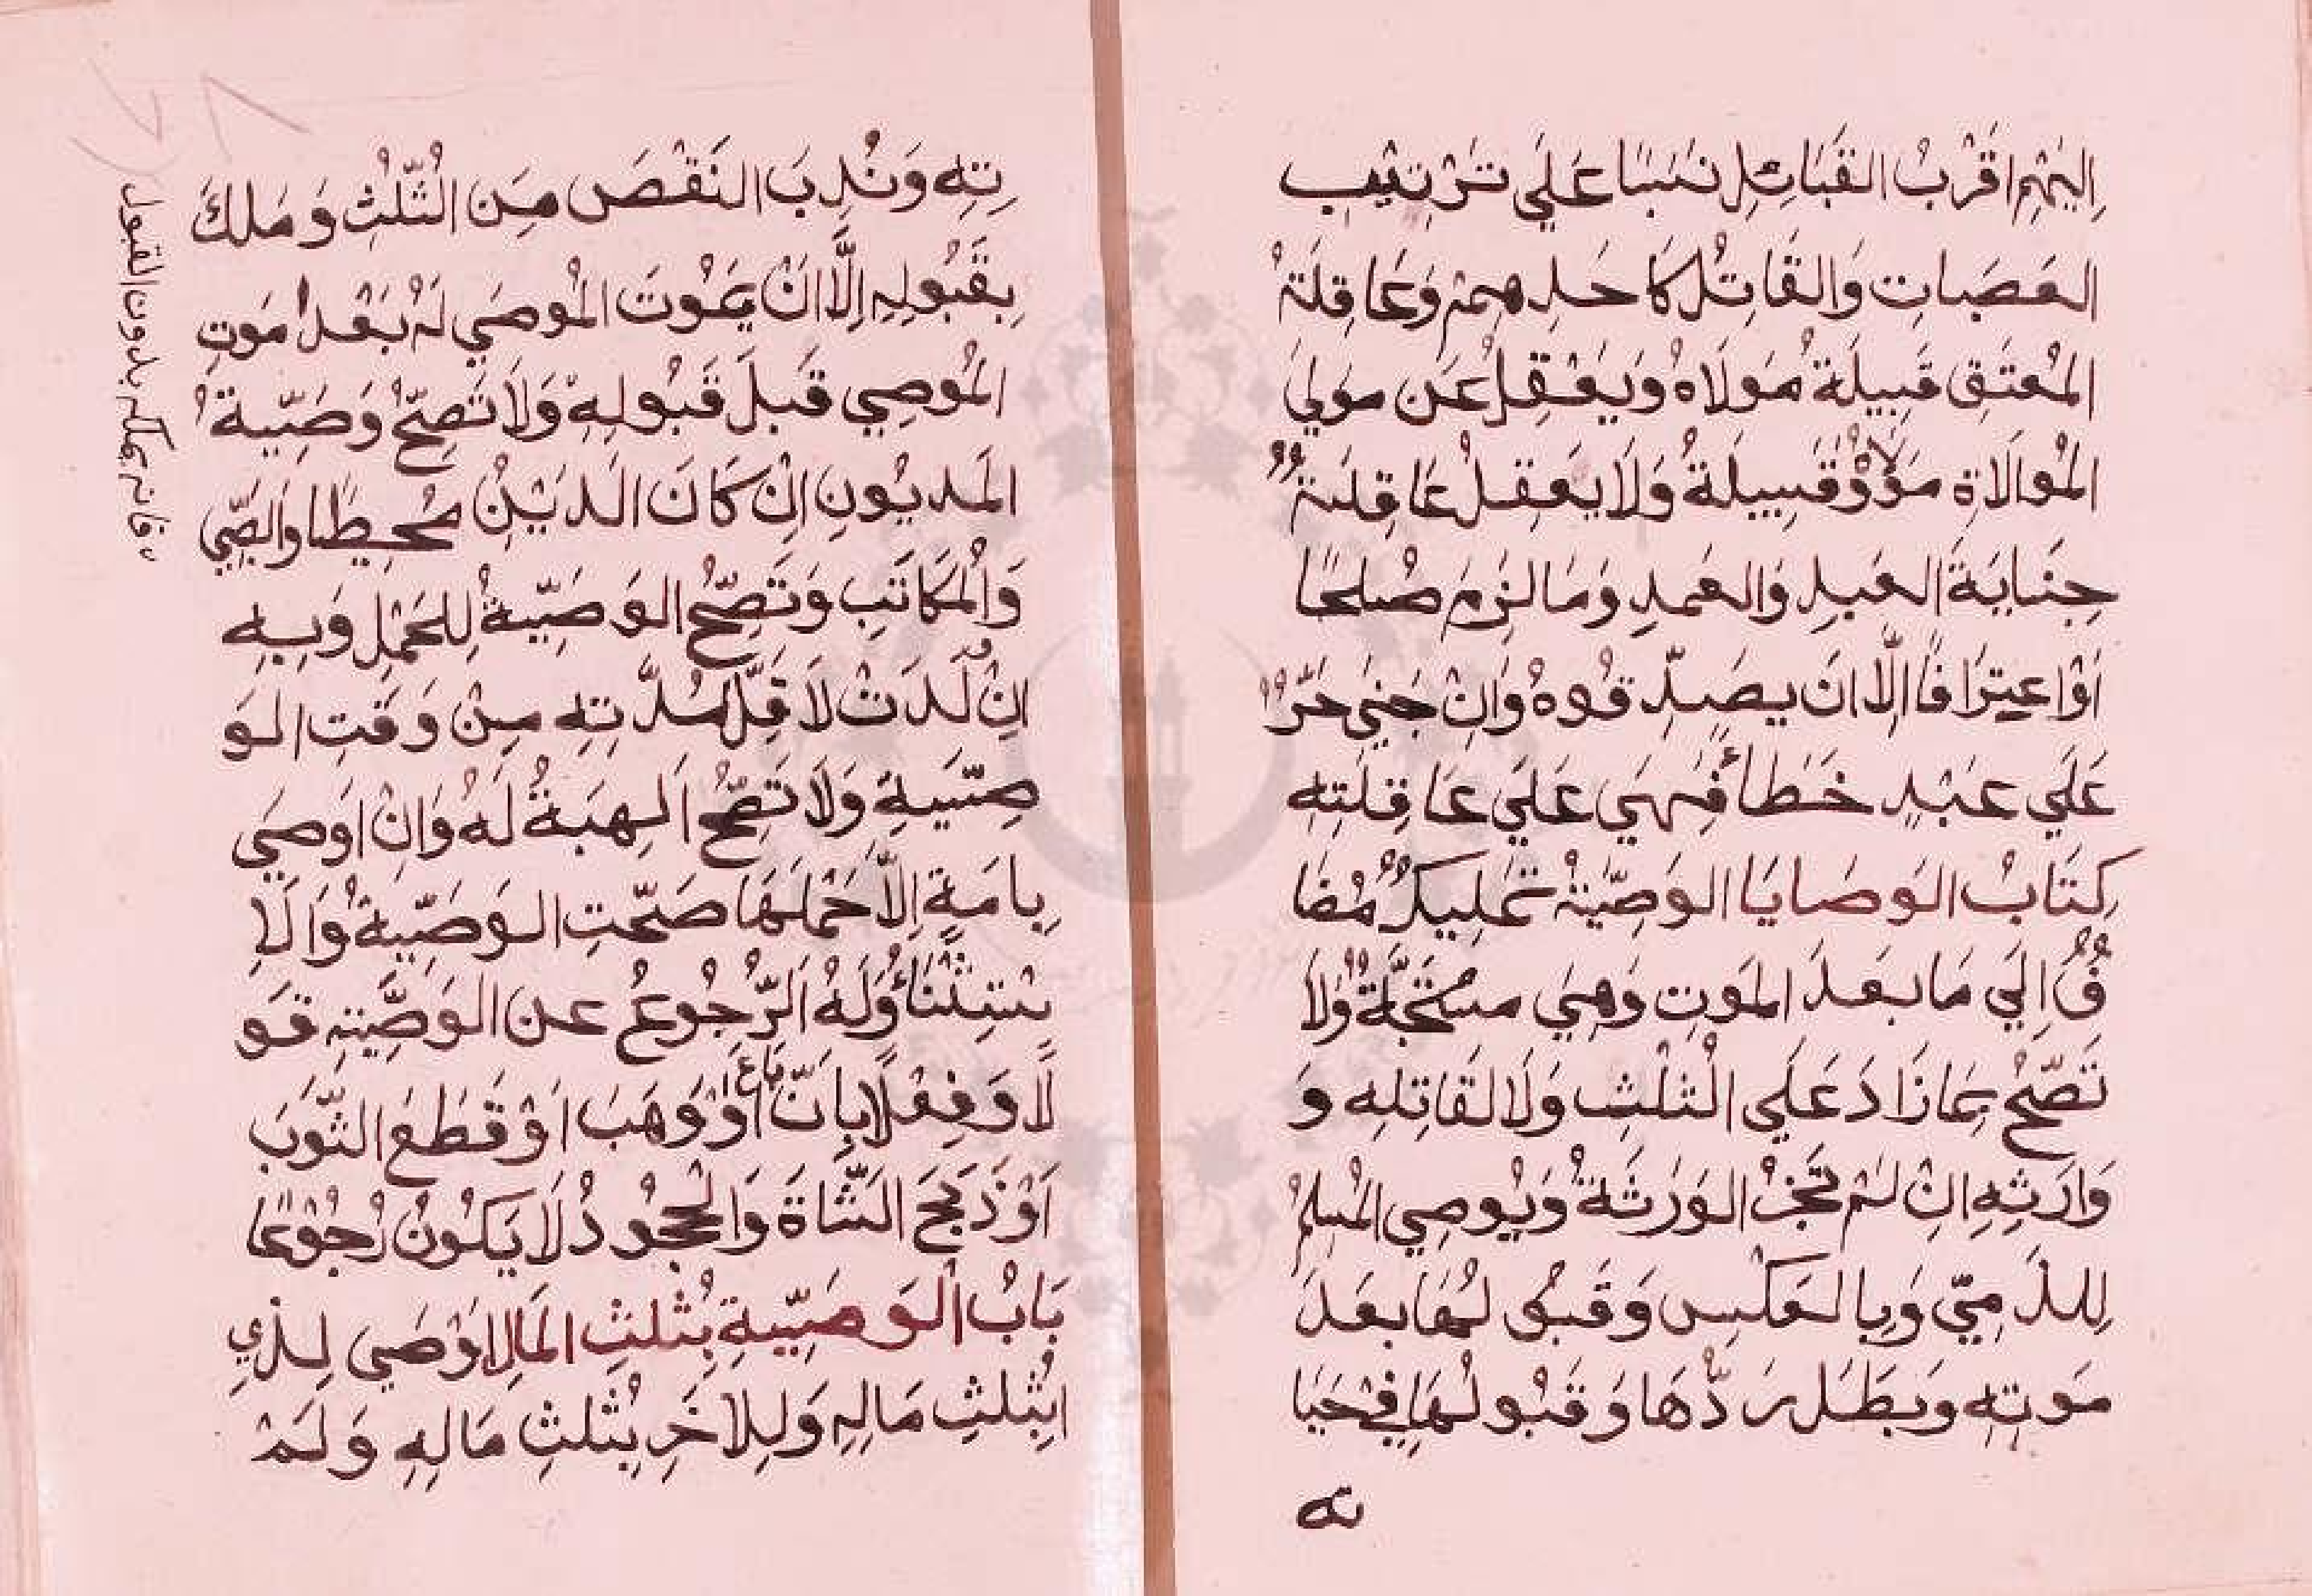 اِلَيْهِمْ اَقْرَبُ القَبَائِلِ نَسَبًا عَلَي تَرْتِيْبِ
العَصَبَاتِ وَالقَاتِلُ كَاَحَدِهِمْ وَعَاقِلَةُ
المُعْتَقِ قَبِيلَةُ مَولَاهُ وَيَعْقِلُ عَن مَولَي
المُوالَاةِ مَوْلَاهُ وَقَبِيلَةُ وَلَا يَعقِلُ عَاقِلَةٌ
جِنَايَةَ العَبدِ وَالعَمدِ وَمَا لَزِمَ صُلحًا
اَوْ اعتِرَافًا اِلَّا اَن يصَدِّقُوهُ وَاِنْ جَنَي حُرٌّ
عَلَي عَبْدٍ خَطَأً فَهِيَ عَلَي عَاقِلَتِهِ
كِتَابُ الوَصَايَا الوَصِيَّةُ تَمْلِيكٌ مُضَا
فٌ اِلَي مَا بَعدَ المَوتِ وَهِيَ مستَحَبَّةٌ وَلَا
تَصِحُّ بِمَا زَادَ عَلَي الثُلْثِ وَلَا لقَاتِلِه وَ
وَارِثِهِ اِنْ لَمْ تَجُزِ الوَرَثَةُ وَيُوصِي المُسلِمُ
لِلذِّمِيِّ وَبِالعَكْسِ وَقَبُو لُهَا بَعدَ
مَوتِهِ وَبَطَل رَدُّهَا وَقَبُولُهَا فِي حَيَا
ته
تِهِ وَنُدِبَ النَقْصَ مِنَ الثُّلُثِ وَمَلكَ
بِقَبُولِهِ اِلَّا اَنْ يَمُوتَ المُوصَي لَهُ بَعْدَ مَوتِ
المُوصِي قَبلَ قَبُولِهِ وَلَا تَصِحُّ وَصِيّةُ
المَديُونِ اِنْ كَانَ الدَيْنُ مُحِيطًا وَالصَّبِي
وَالمُكَاتَبِ وَتَصِحُّ الوَصِيّةُ لِلحَمْلِ وَبِهِ
اِنْ وَلَدَتْ لَاقِلّ مُدَّتِهِ مِنْ وَقتِ الوَ
صِيّيةِ وَلَا تَصِحُّ الهِبَةُ لَهُ وَاِنْ اَوصَي
بِاَمَةٍ اِلَّا حَملَهَا صَحَّتِ الوَصِيّةُ وَالاِ
ستِثْنَاءُ وَلَهُ الرُّجُوعُ عن الوَصِيّةِ قَو
لًا وَفِعْلًا بِاَنّ بَاعَ اَوْ وَهَبَ اَوْ قَطَعَ الثَّوبَ
اَوْ ذَبَحَ الشَّاةَ وَالجحُودُ لَا يَكُونُ رُجُوْعًا
بَابُ الوَصِيّيةِ بِثُلثِ المَالِ اَوْصَي لِذَي
ابِثُلثِ مَالِهِ وَلِلاخَرِ بِثُلثِ مَالِهِ وَلَمْ
فانه يملكه بدون القبول